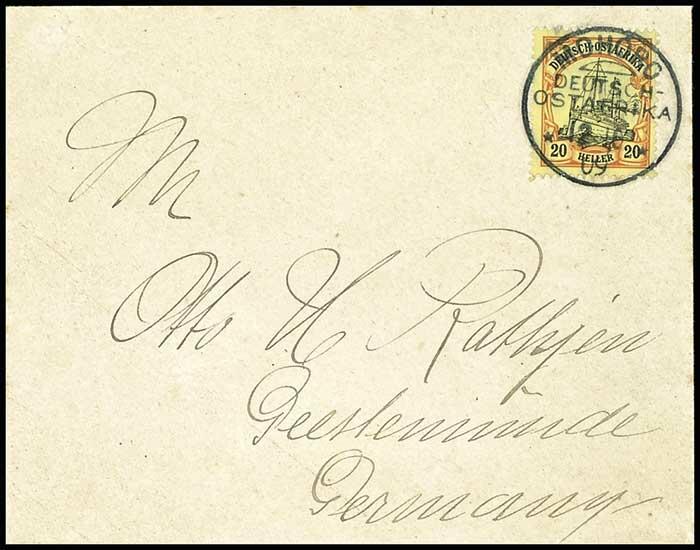 DEUTSCH-OSTAFRIKA
20 HELLER 20
DEUTSCH-
OSTAFRIKA
09
Mr
Otto H Rathjen
Geestemünde
Germany